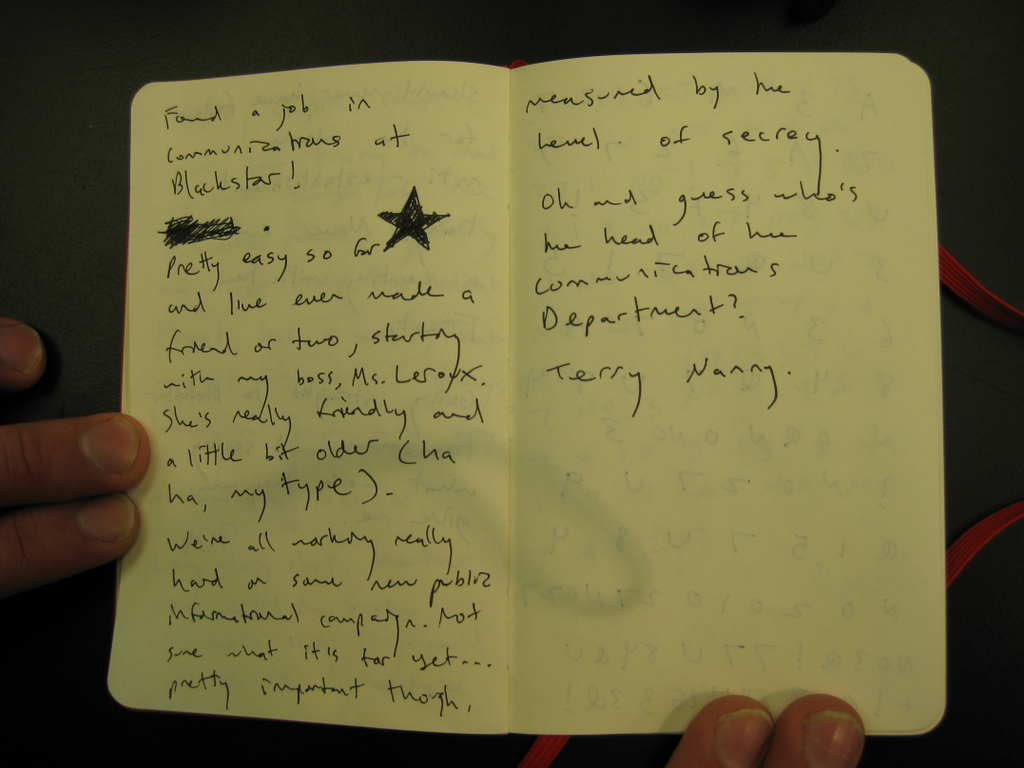 Found a job in
communications at
Blackstar!
Pretty easy so far
and I've even made a
friend or two, starting
with my boss, Ms. Leroux.
She's really friendly and
a little bit older (ha
ha, my type).
We're all working really
hard on some new public
informational campaign. Not
sure what it's for yet...
pretty important though,
measured by the
level. of secrecy.
Oh and guess who's
the head of the
communications
Department?
Terry Nanny.